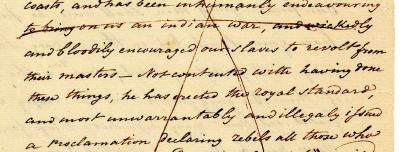 coasts, and has been inhumanly endeavouring
to bring on us an indian war, and wickedly
and bloodily encouraged our slaves to revolt from
their masters — Not contented with having done
these things, he has erected the royal standard
and most unwarrantably and illegally issued
a proclamation declaring rebels all those who